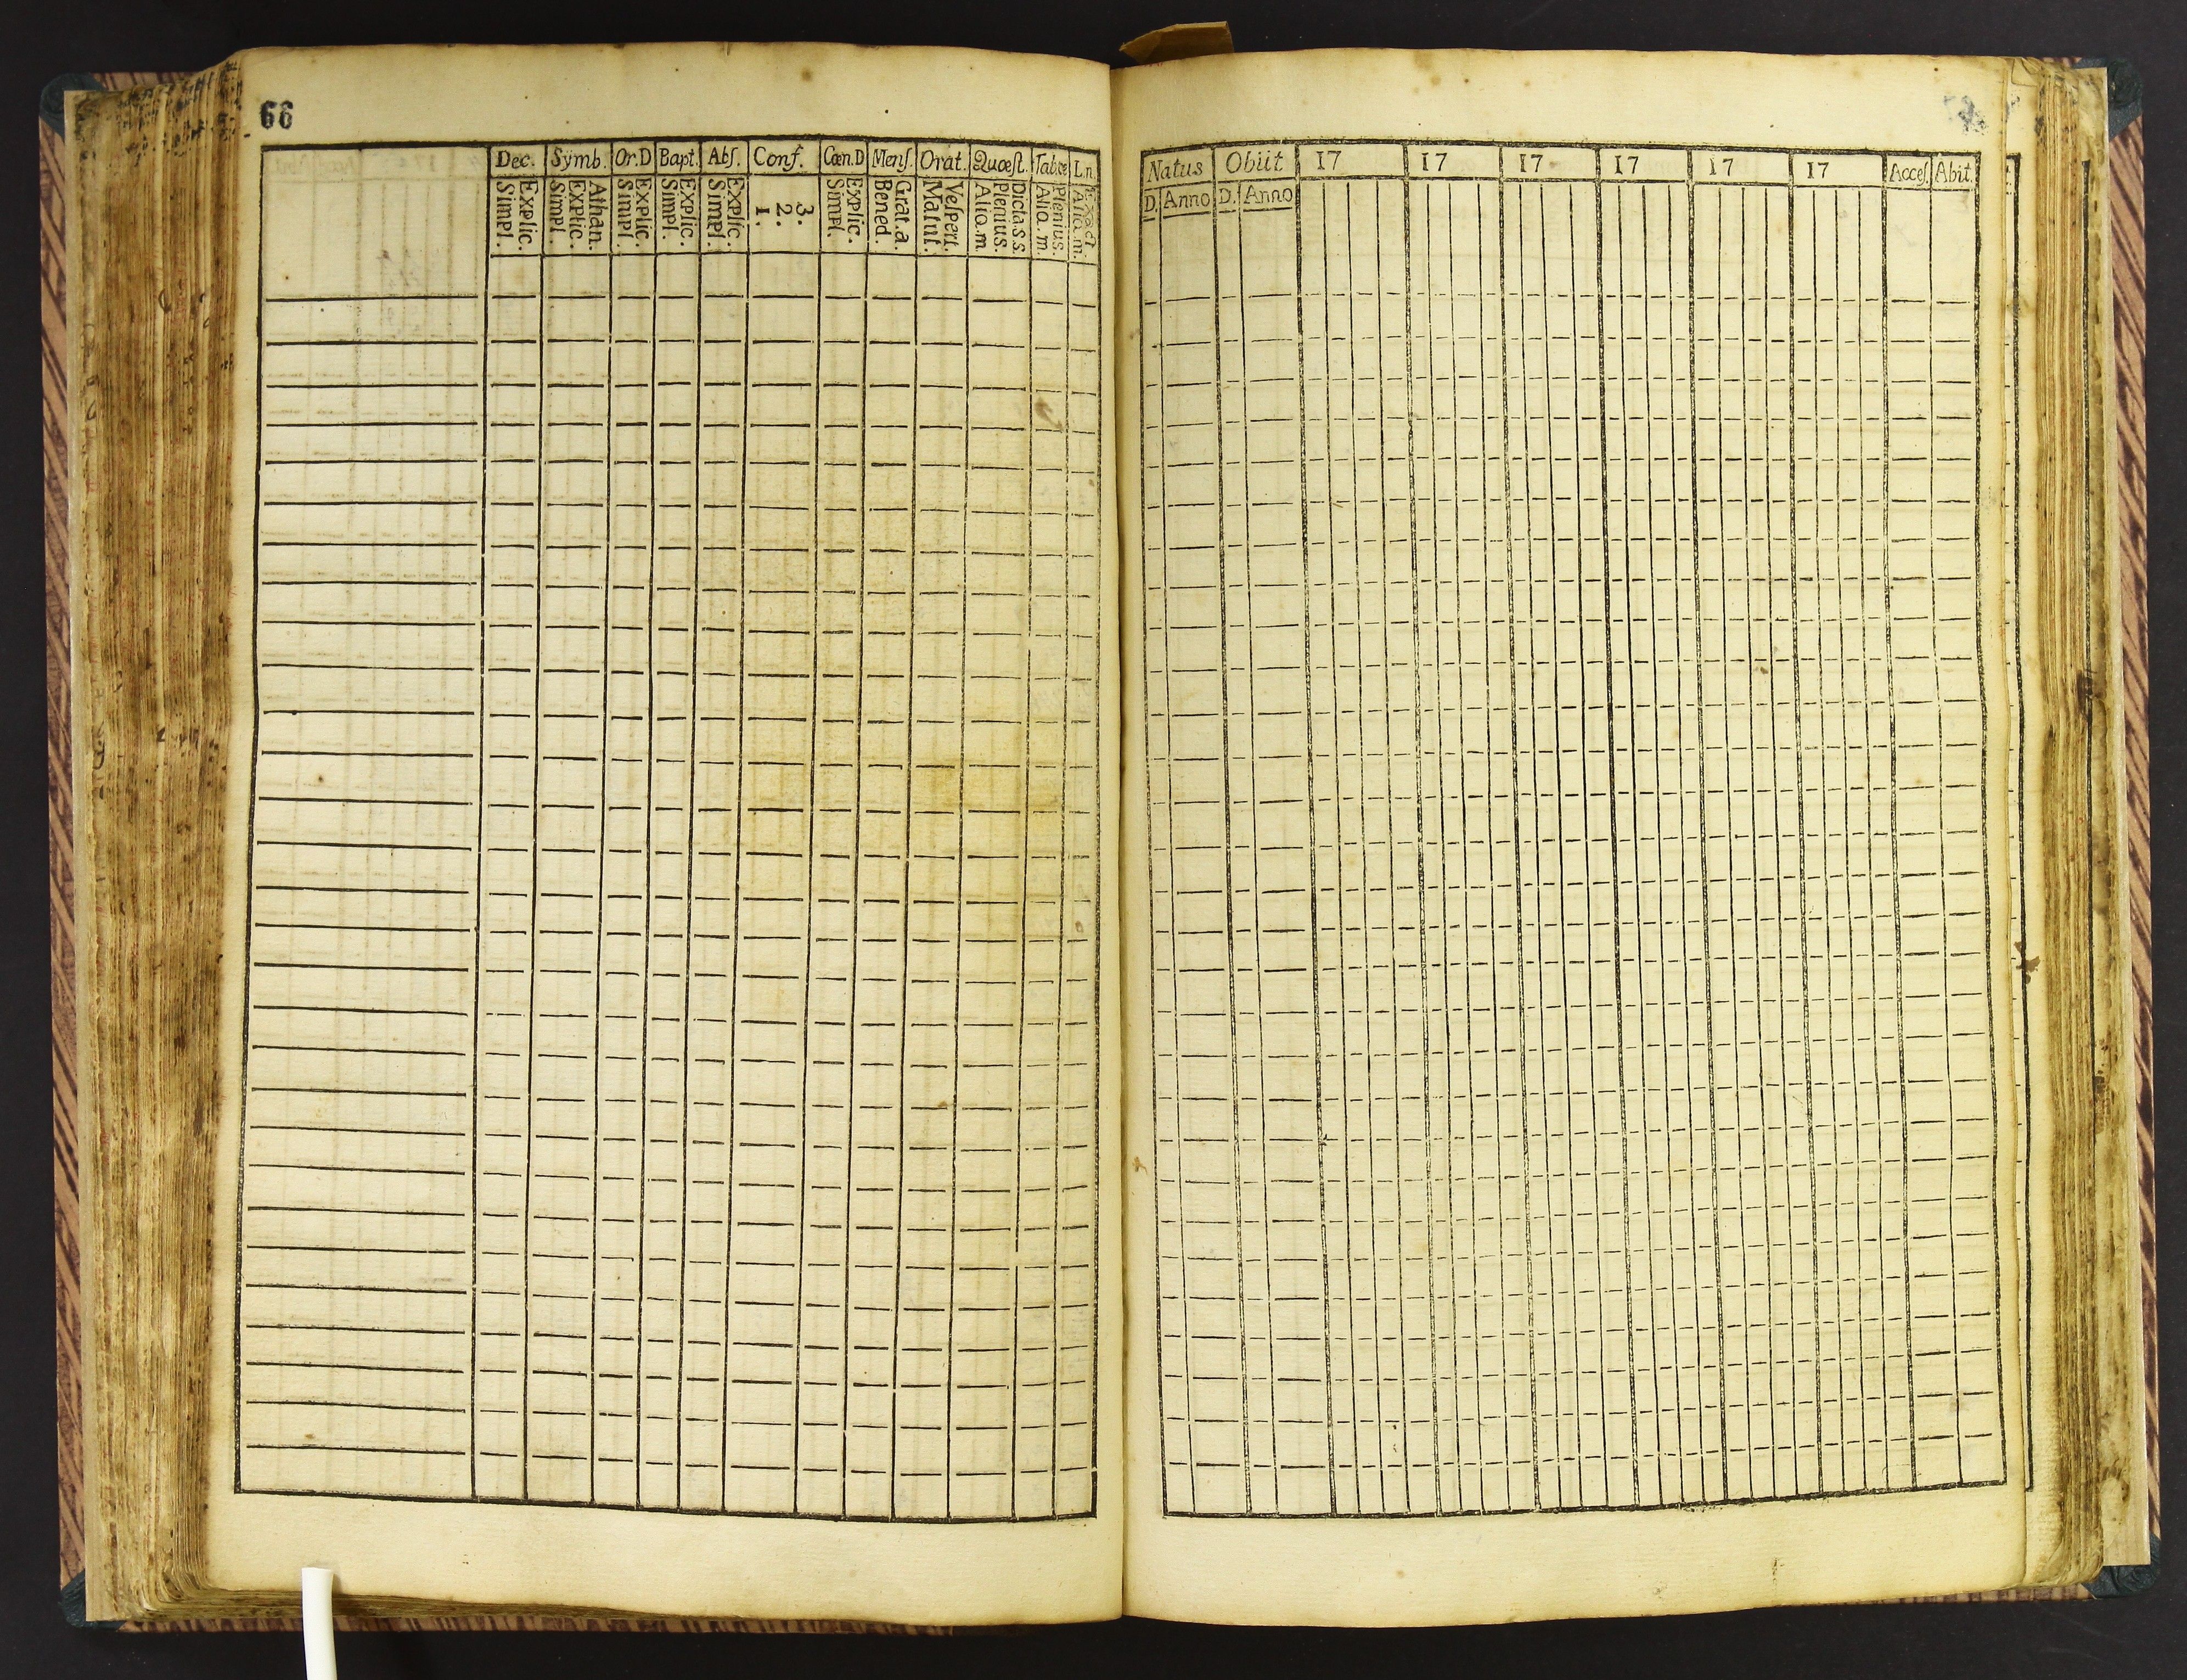 66
Dec. Symb. Or.D Bapt. Abſ. Conf. Cœn.D Menſ. Orat. Quæſt. Tabœ L.n.
Simpl. Explic. Simpl. Explic. Athan. Simpl. Explic. Simpl. Explic. Simpl. Explic. 1. 2. 3. Simpl. Explic. Bened. Grat.a. Matut. Veſpert. Alio.m. Plenius. Dicta.s.s. Alio.m. Plenius. Alio.m. Exact
Natus Obiit 17 17 17 17 17 17 Acceſ. Abit.
D. Anno D. Anno